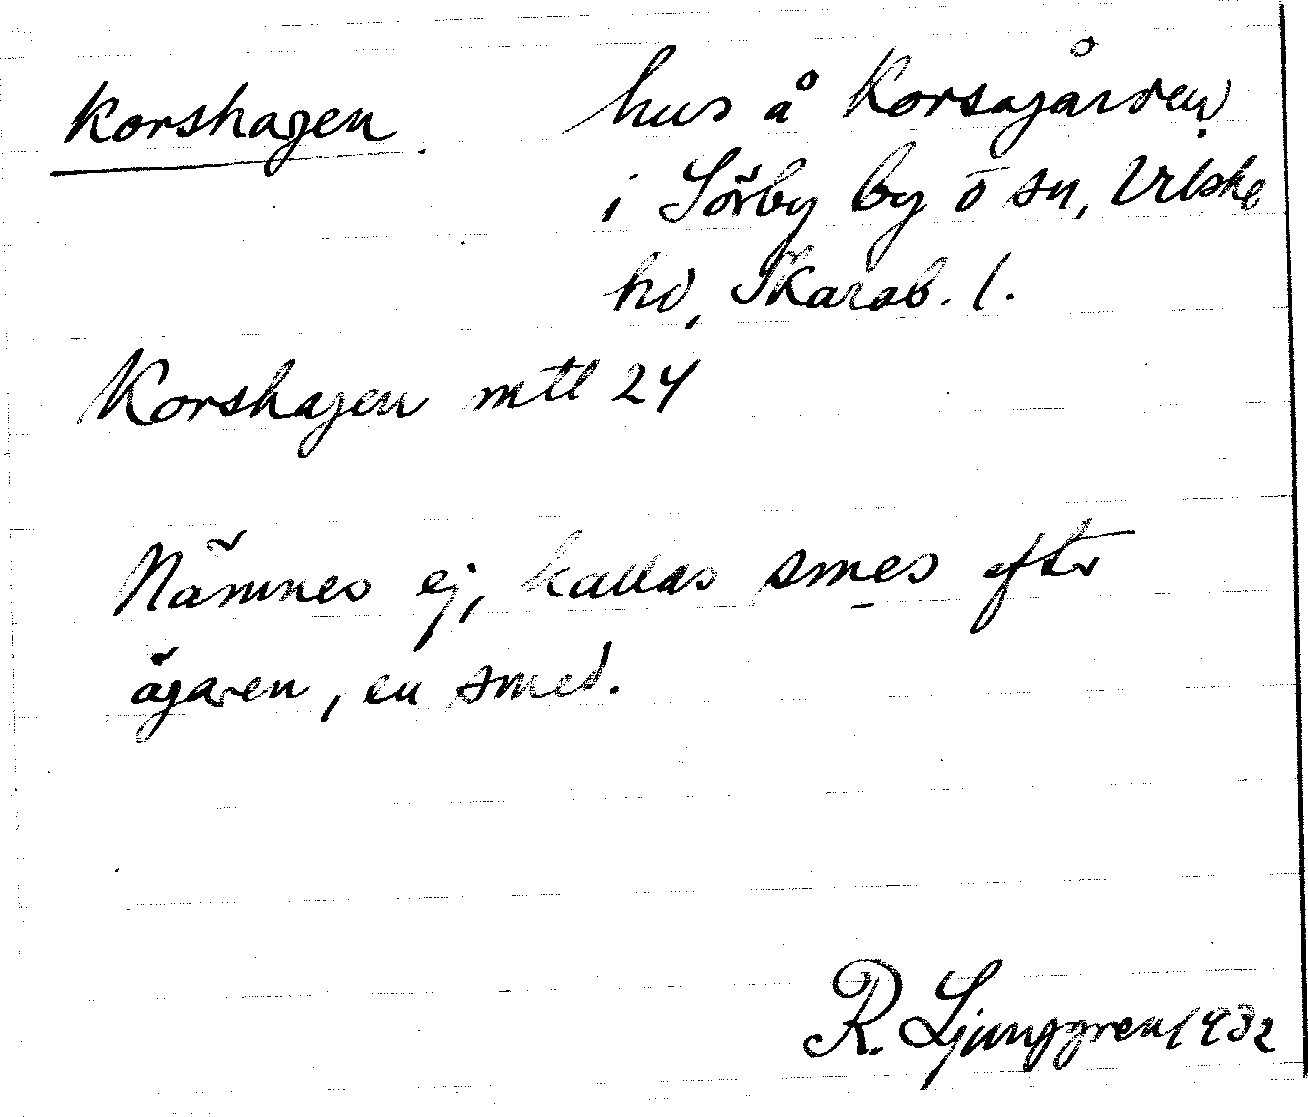 Korshagen. hus å Korsgården
i Sörby by o sn, Vilske
hd, Skarab. l.
Korshagen mtl 24
Nämnes ej, kallas smes efter
ägaren, en smed.
R. Ljunggren 1932